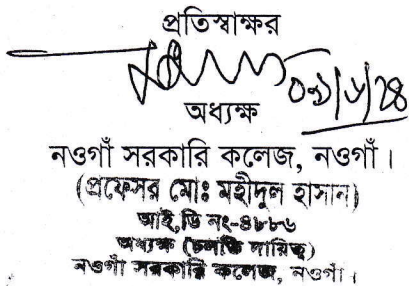 প্রতিস্বাক্ষর
অধ্যক্ষ
নওগাঁ সরকারি কলেজ, নওগাঁ।
(প্রফেসর মোঃ মহীদুল হাসান)
আই,ডি নং-৪৮৮৬
অধ্যক্ষ (চলতি দায়িত্ব)
নওগাঁ সরকারি কলেজ, নওগাঁ।